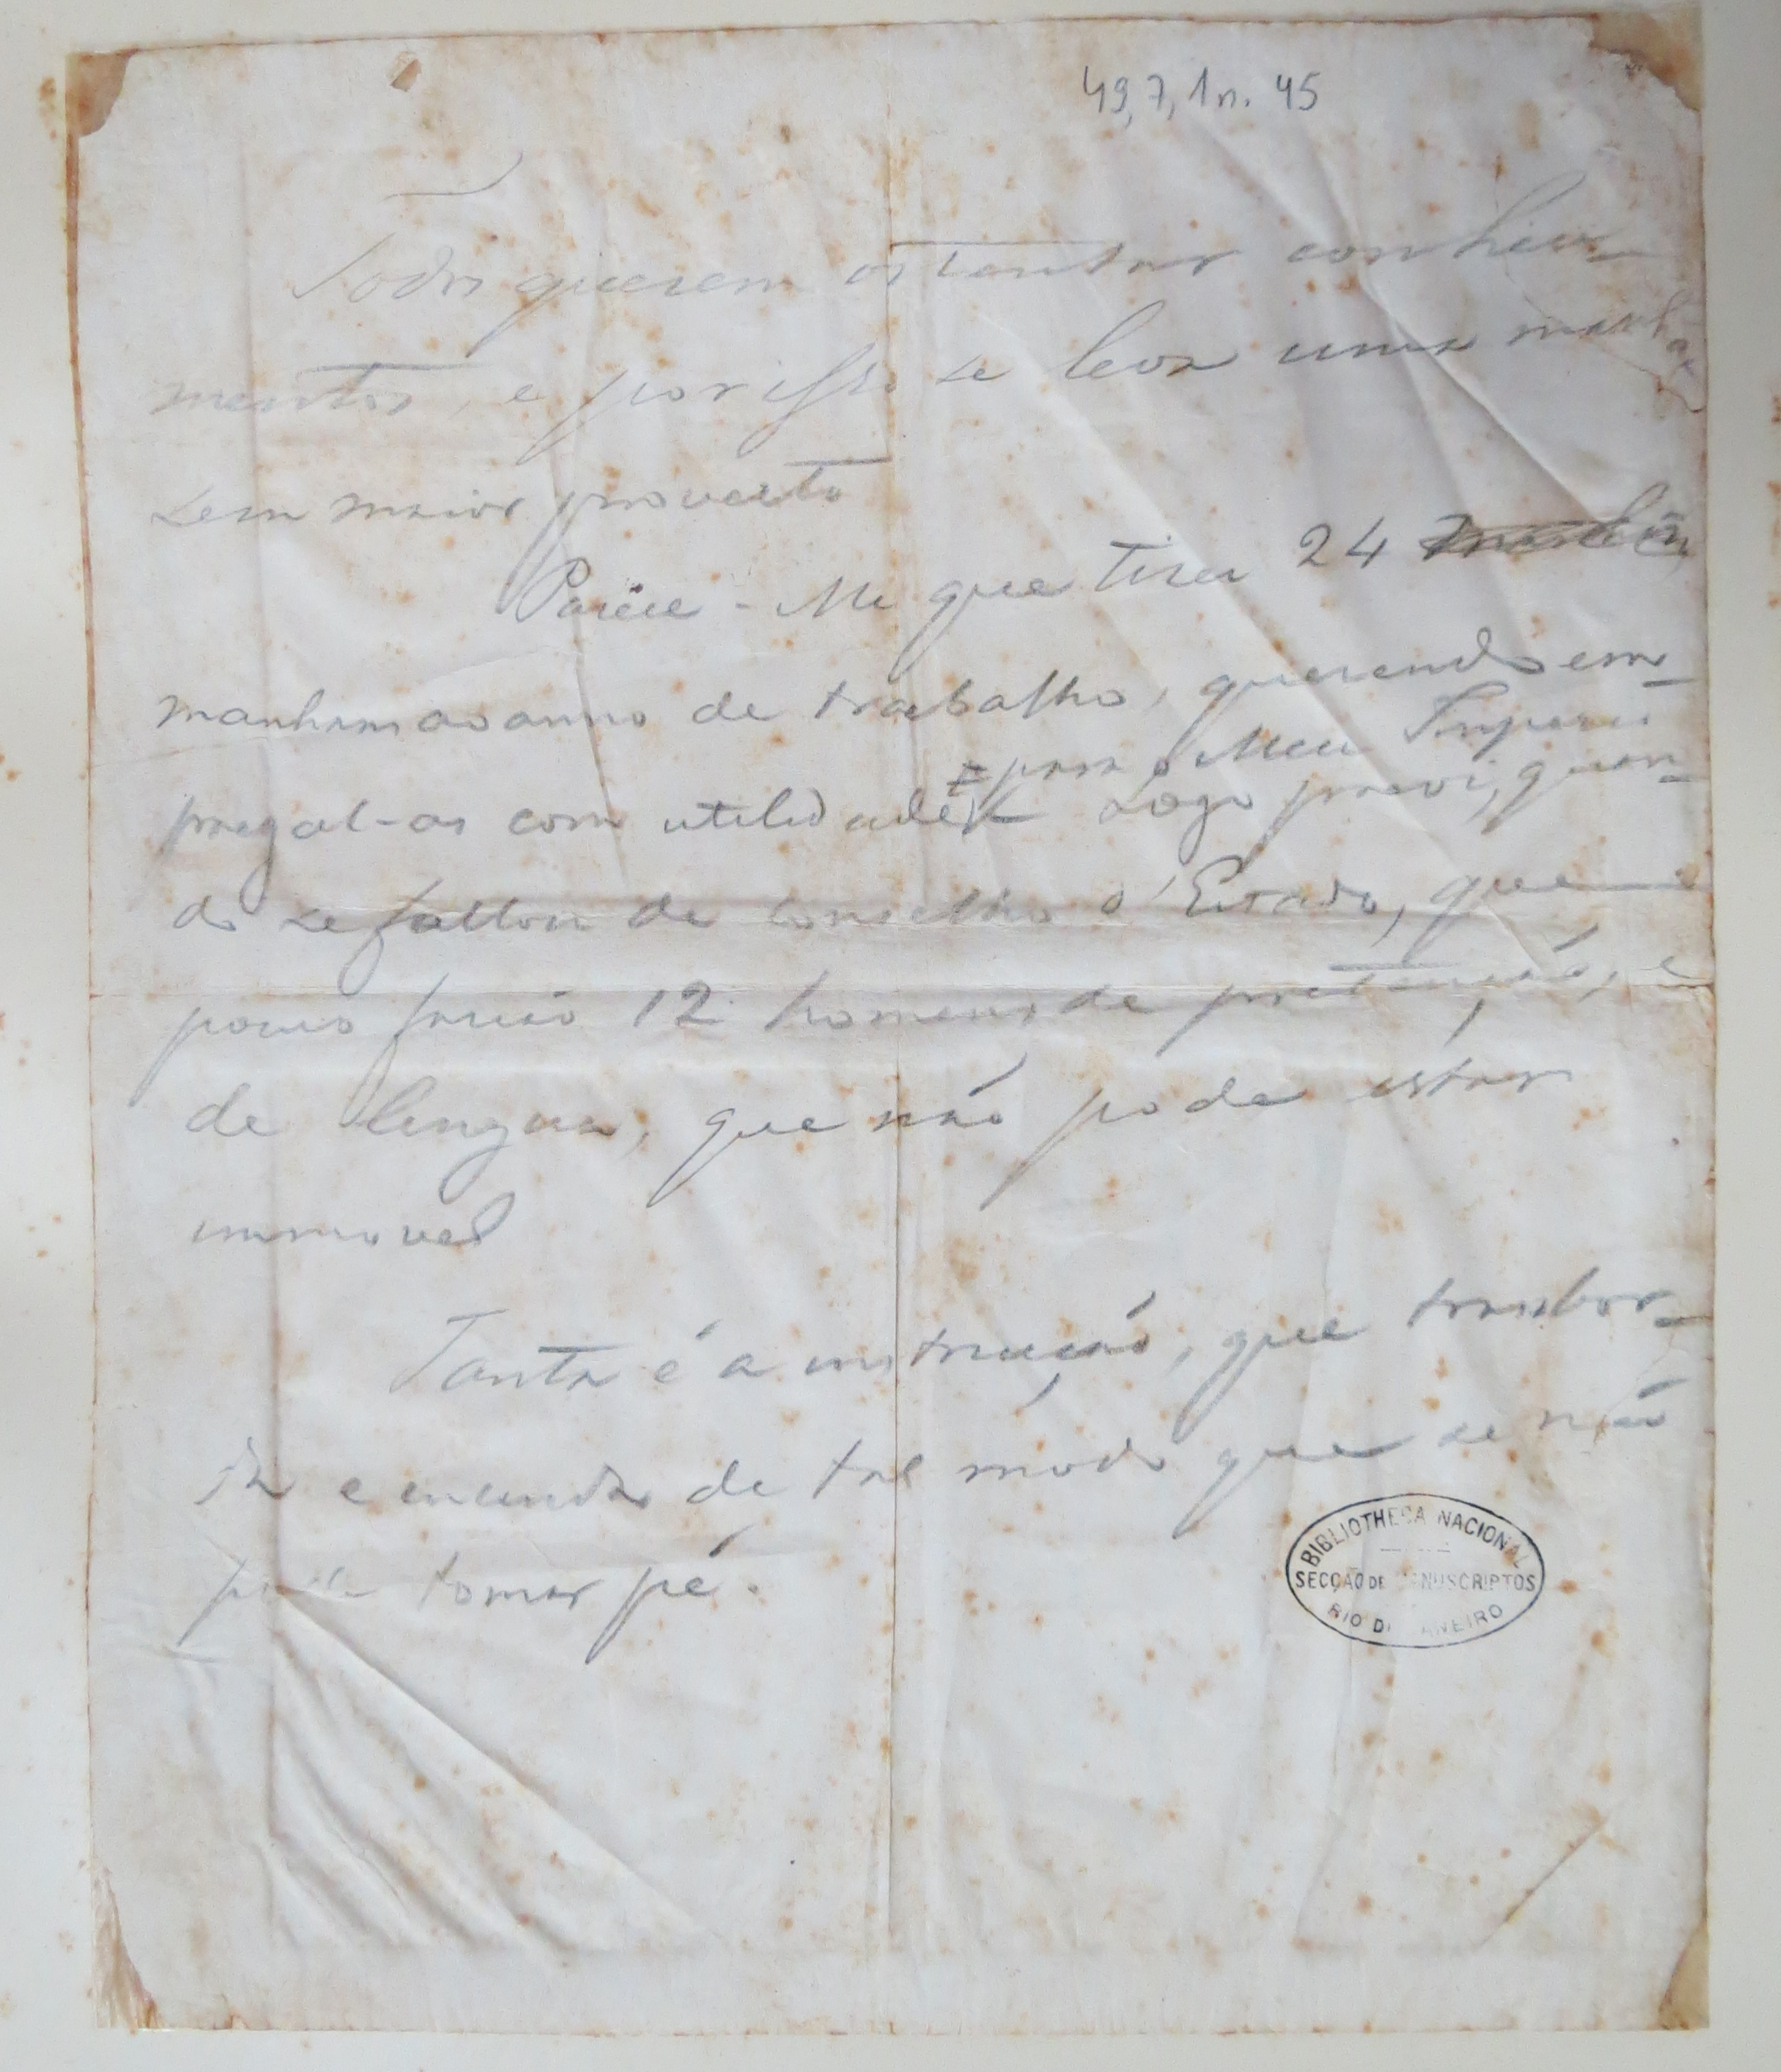 49,7,1 n. 45
Todos querem ostentar conheci-
mentos, e por isso se leva uma manhã
sem maior proveito
Parece-Me que tirei 24
manhãs ao anno de trabalho, querendo em-
pregal-as com utilidade
para o Meu Imperio
Logo previ, quan-
do se fallou de Conselho d'Estado, que
12 homens de pretenção, e
de lingua, que não pode estar
immovel
Tanta é a instrucção, que transbor-
da e de tal modo que se não
pode tomar pé.
BIBLIOTHECA NACIONAL
SECÇÃO DE MANUSCRIPTOS
RIO DE JANEIRO